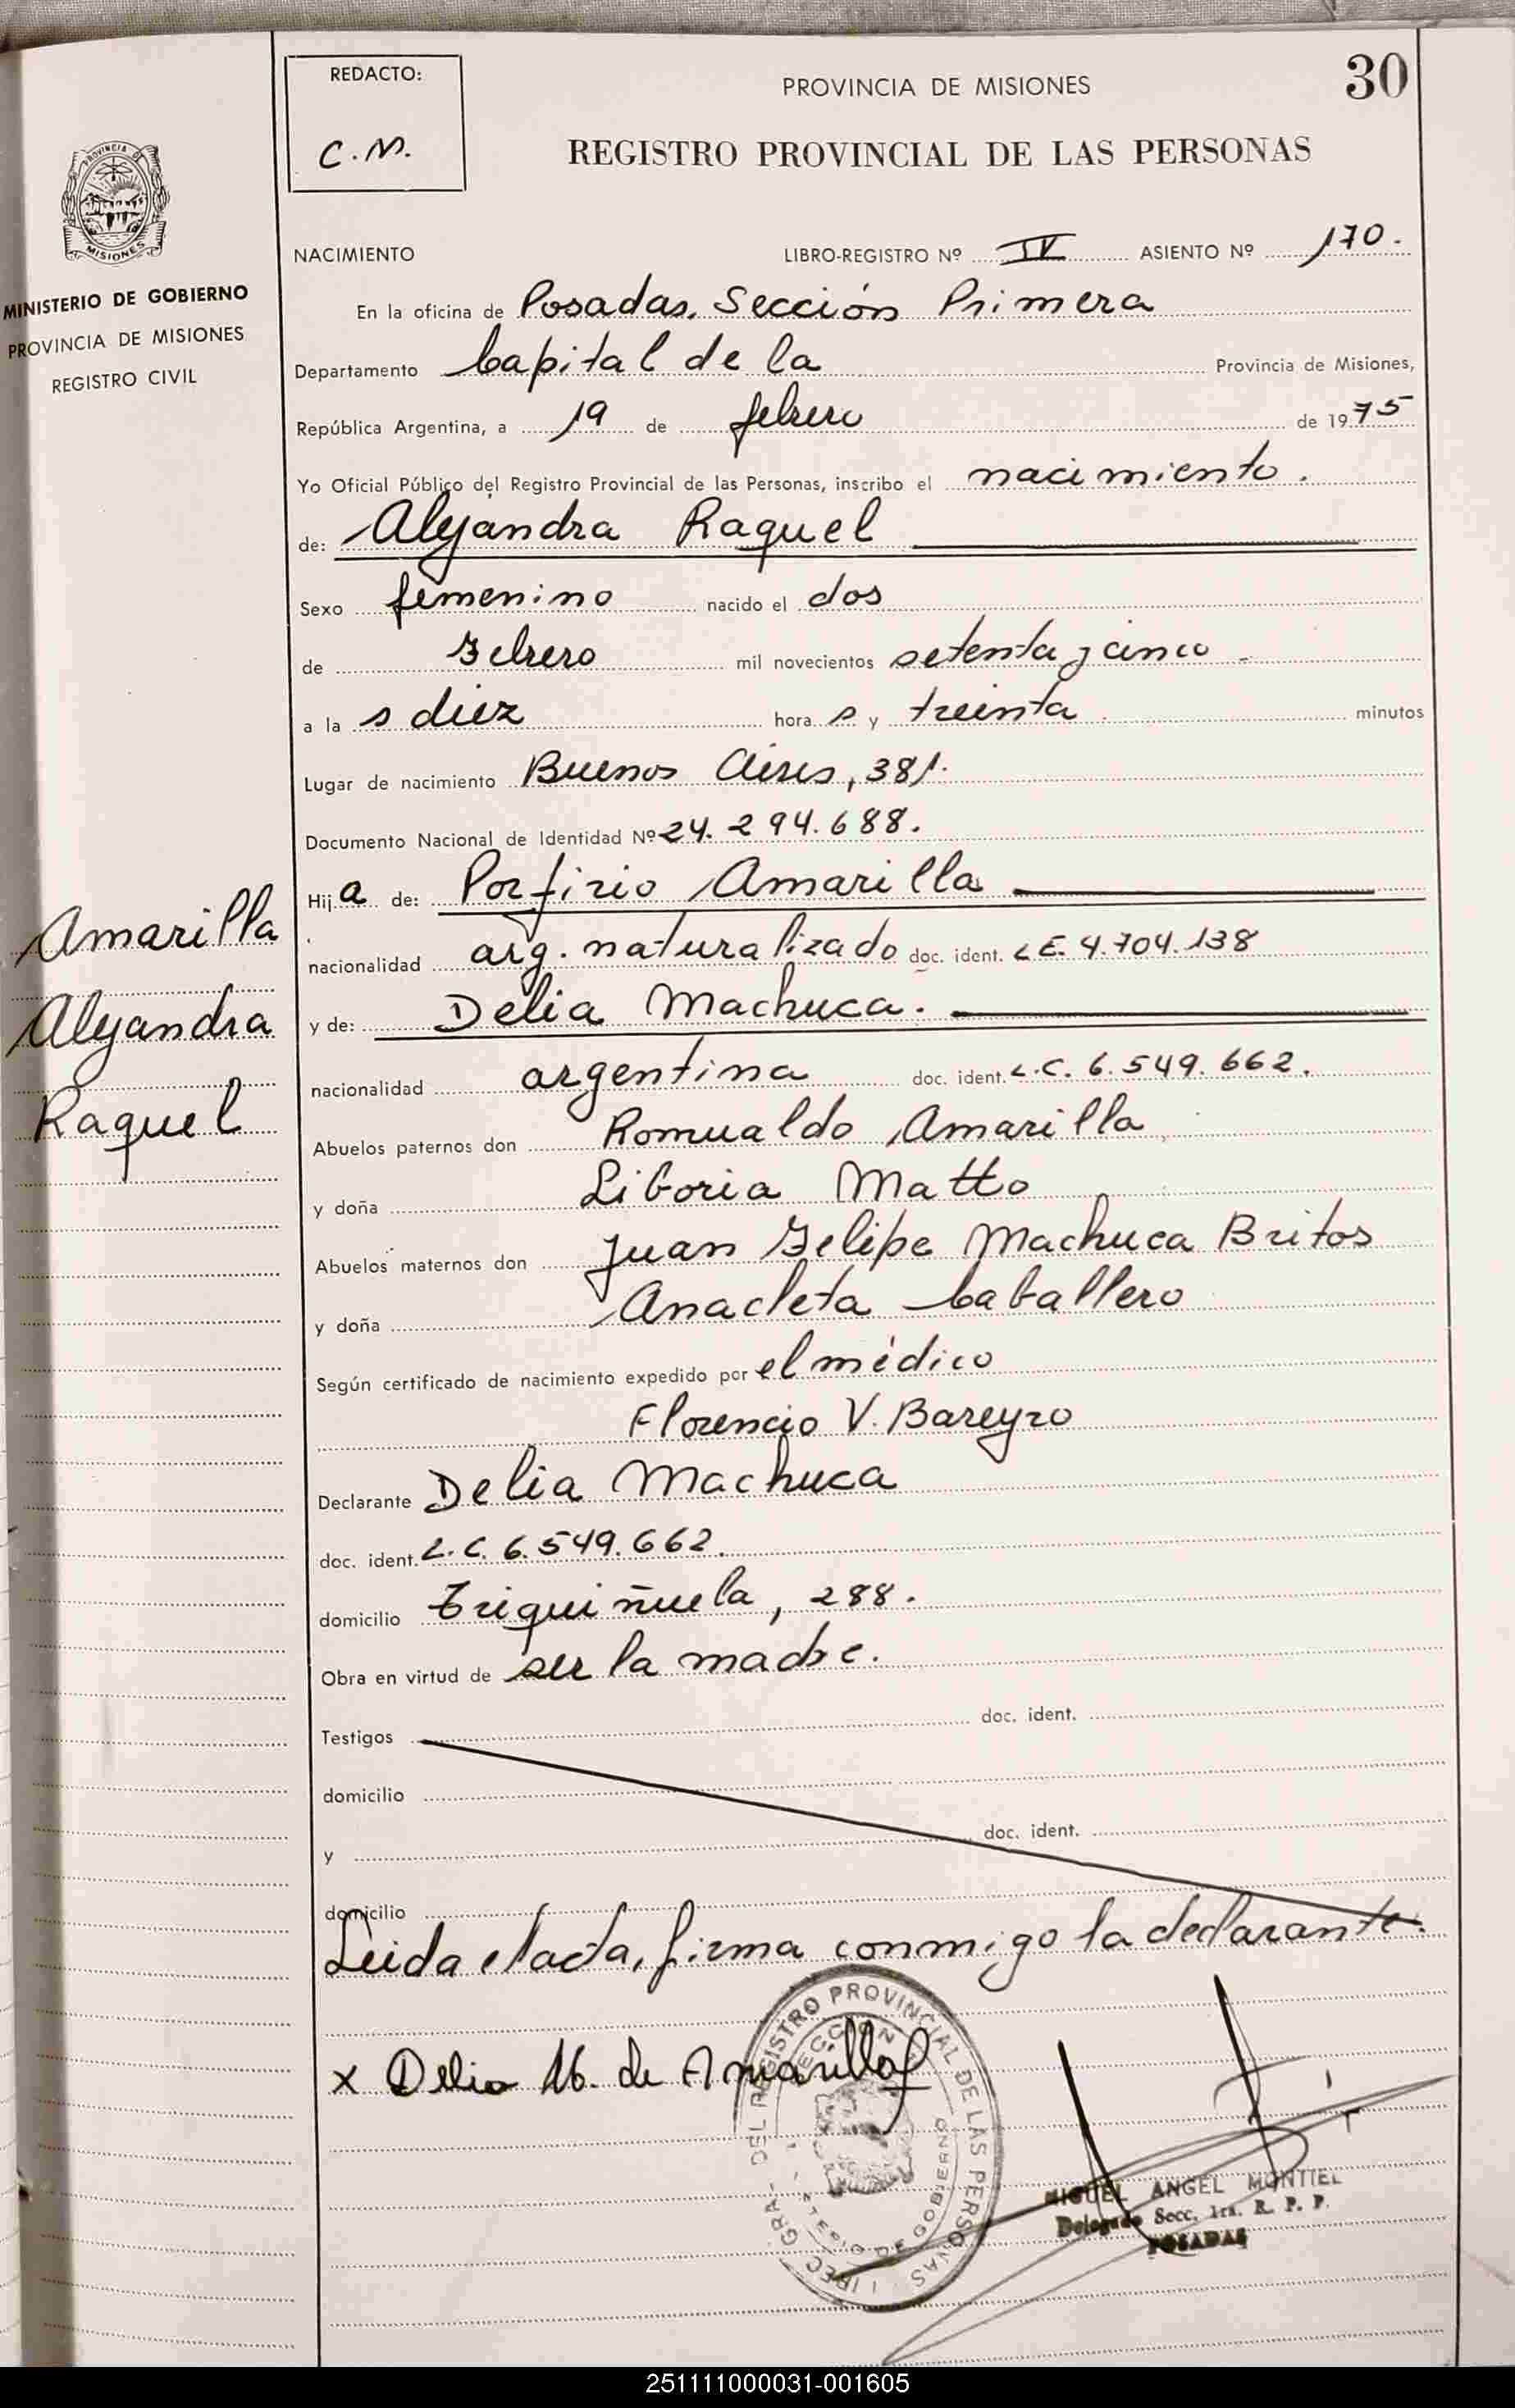 REDACTO:
C.M.
PROVINCIA DE MISIONES
30
REGISTRO PROVINCIAL DE LAS PERSONAS
PROVINCIA D MISIONES
MINISTERIO DE GOBIERNO
PROVINCIA DE MISIONES
REGISTRO CIVIL
NACIMIENTO LIBRO-REGISTRO Nº IV ASIENTO Nº 170.
En la oficina de Posadas, Sección Primera
Departamento Capital de la Provincia de Misiones,
República Argentina, a 19 de febrero de 1975
Yo Oficial Público del Registro Provincial de las Personas, inscribo el nacimiento.
de: Alejandra Raquel
Sexo femenino nacido el dos
de Febrero mil novecientos setenta y cinco
a la s diez hora s y treinta minutos
Lugar de nacimiento Buenos Aires, 381.
Documento Nacional de Identidad Nº 24.294.688.
Hija de: Porfirio Amarilla
nacionalidad arg. naturalizado doc. ident. L.E. 4.704.138
y de: Delia Machuca.
nacionalidad argentina doc. ident. L.C. 6.549.662.
Abuelos paternos don Romualdo Amarilla
y doña Liboria Matto
Abuelos maternos don Juan Felipe Machuca Britos
y doña Anacleta Caballero
Según certificado de nacimiento expedido por el médico
Florencio V. Bareyro
Declarante Delia Machuca
doc. ident. L.C. 6.549.662.
domicilio Triquiñuela, 288.
Obra en virtud de ser la madre.
Testigos doc. ident.
domicilio
y doc. ident.
domicilio
Leida el acta, firma conmigo la declarante.
Amarilla
Alejandra
Raquel
x Delia M. de Amarilla
DEL REGISTRO PROVINCIAL DE LAS PERSONAS
MIGUEL ANGEL MONTIEL
Delegado Secc. 1ra. R. P. P.
POSADAS
251111000031-001605